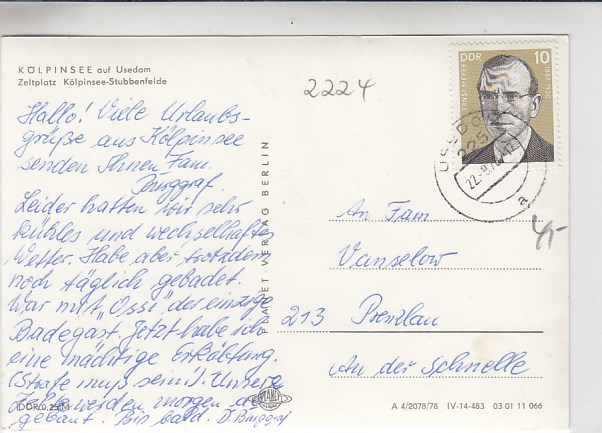 KÖLPINSEE auf Usedom
Zeltplatz Kölpinsee-Stubbenfelde
2224
DDR 10
Hallo! Viele Urlaubs-
grüße aus Kölpinsee
senden Ihnen Fam.
Burggraf.
Leider hatten wir sehr
kühles und wechselhaftes
Wetter. Habe aber trotzdem
noch täglich gebadet.
War mit "Ossi" der einzige
Badegast. Jetzt habe ich
eine mächtige Erkältung.
(Strafe muß sein!). Unsere
Zelte werden morgen ab-
gebaut. Bis bald. D. Burggraf
PLANET VERLAG BERLIN
USEDOM
225
a
An Fam
Vanselow
213 Prenzlau
An der Schnelle
4,-
DDR 0,25 M
PLANET
A 4/2078/78 IV-14-483 03 01 11 066